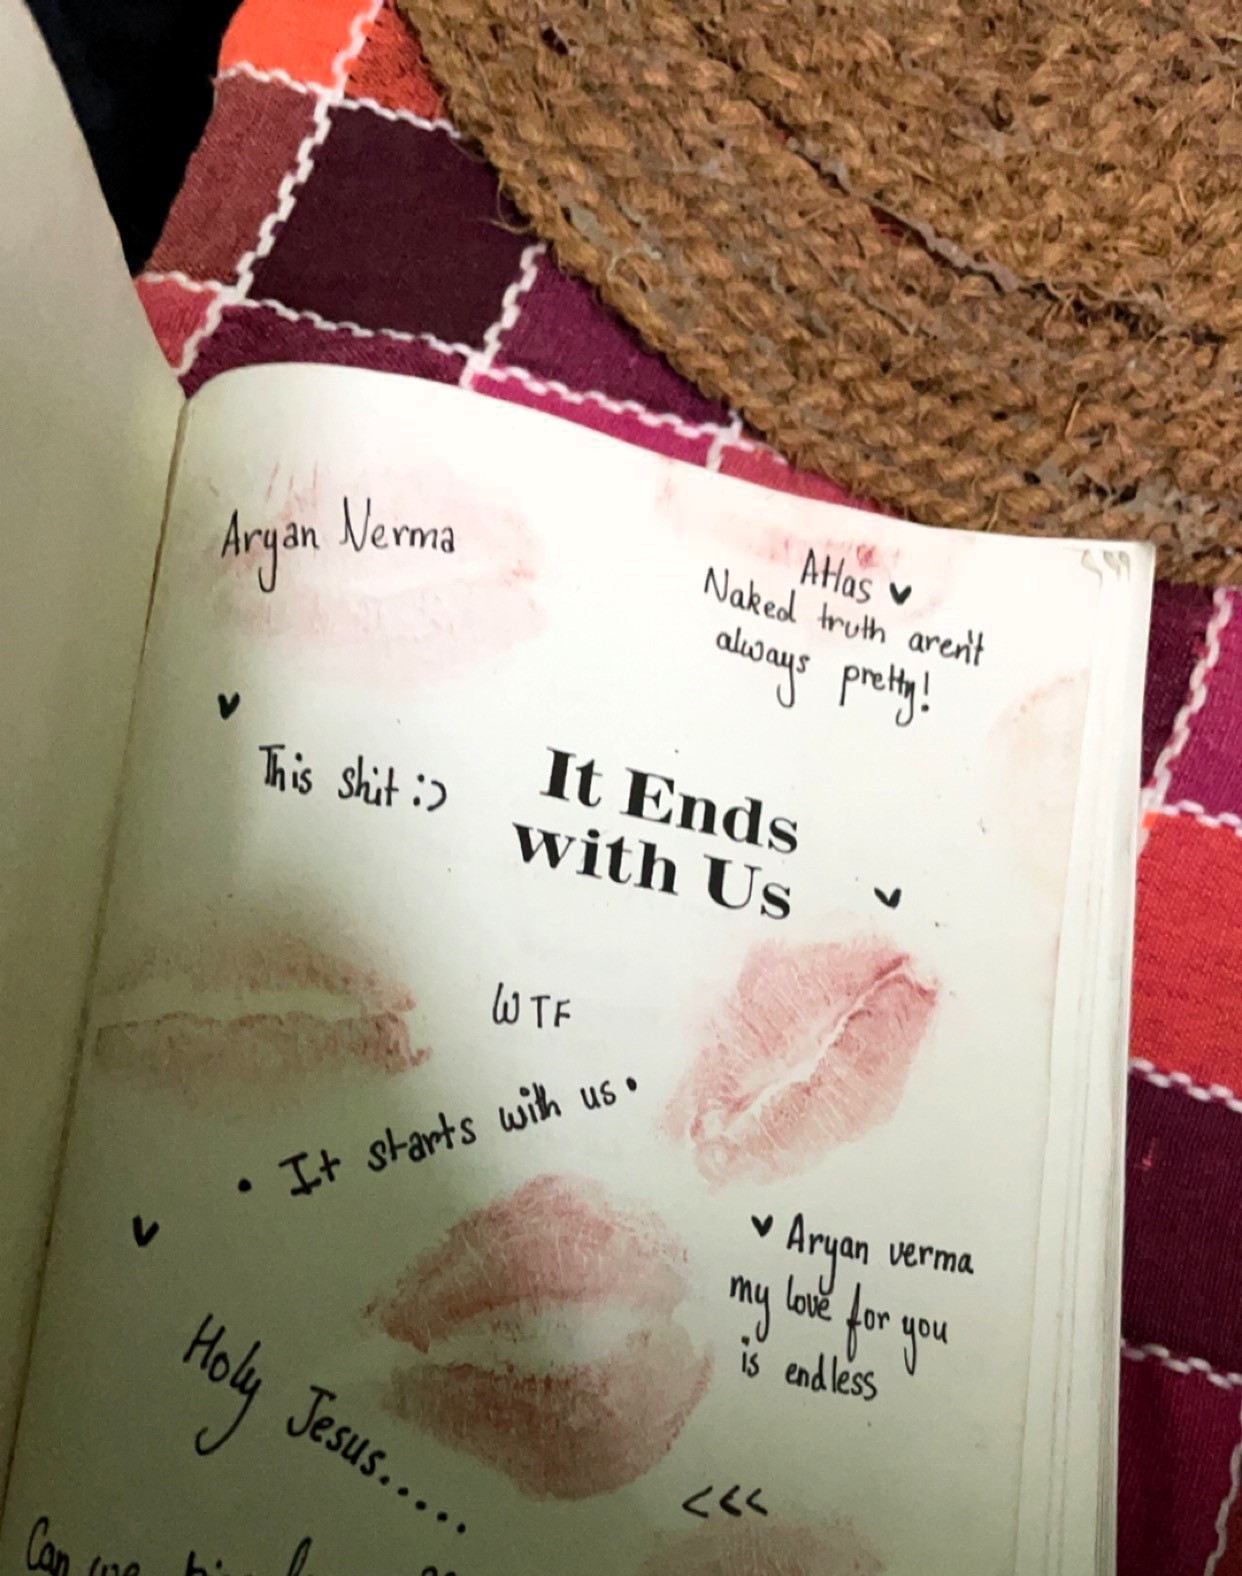 Aryan Nerma
Atlas
Naked truth aren't
always pretty!
This shit :)
It Ends
with Us
WTF
• It starts with us •
Aryan verma
my love for you
is endless
Holy Jesus.....
<<<
Can we